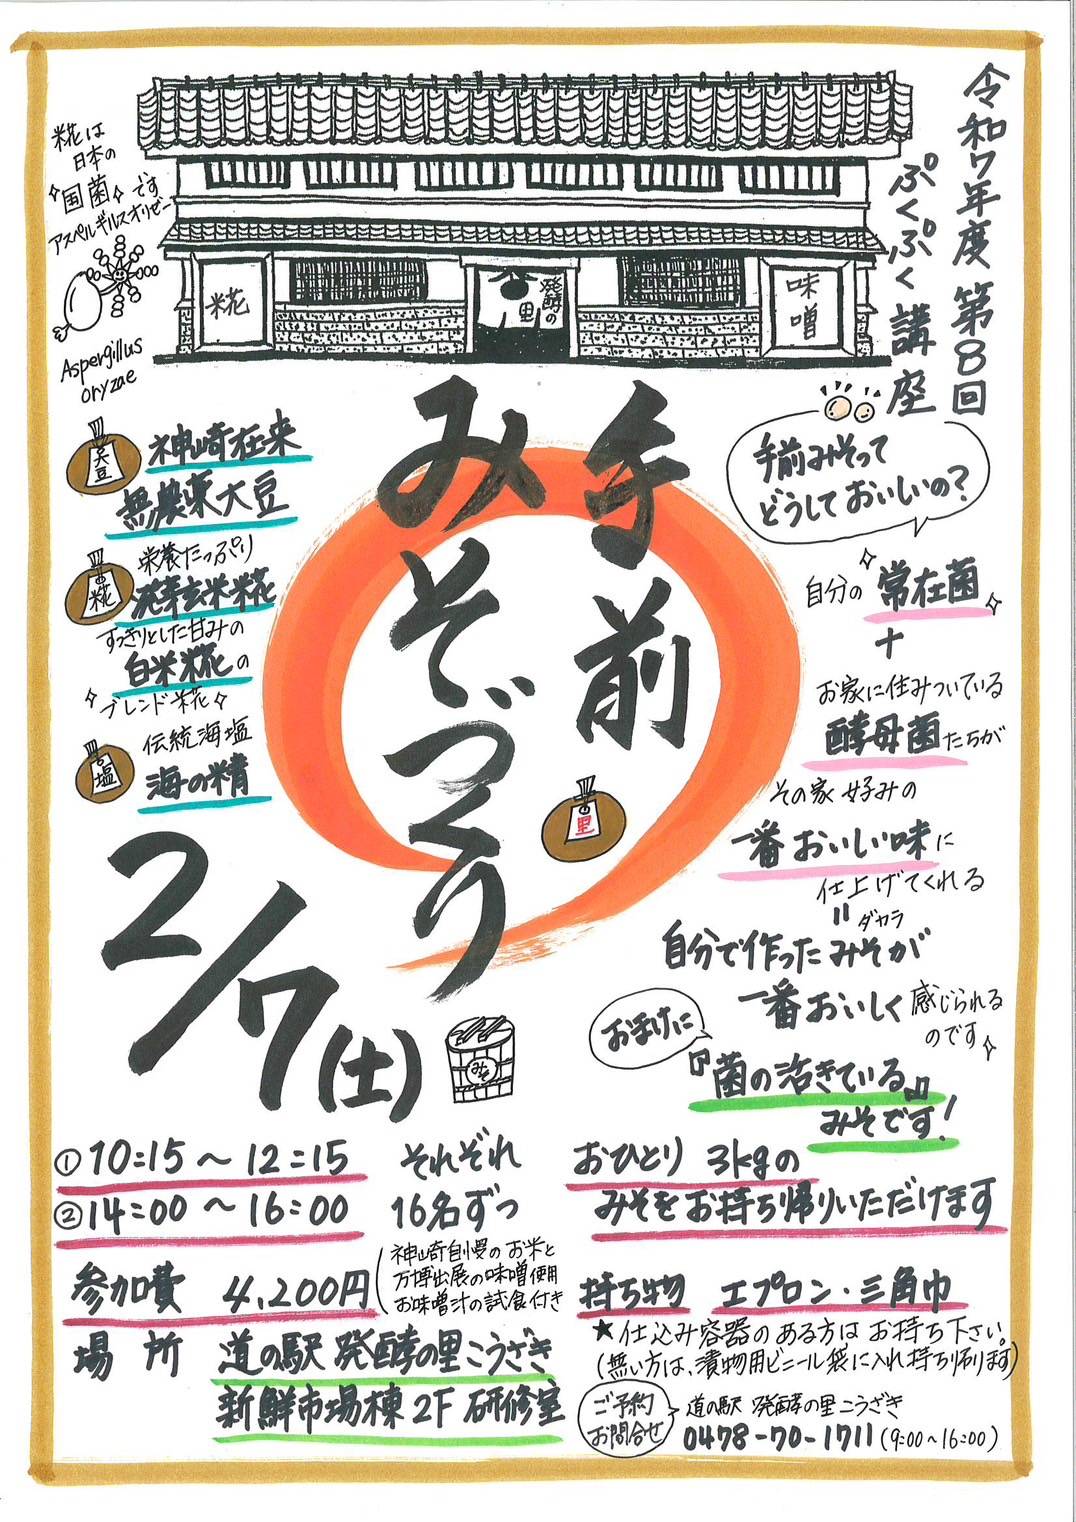 令和7年度 第8回
ぷくぷく講座
糀は
日本の
国菌です
アスペルギルスオリゼー
Aspergillus
oryzae
糀
発酵の
里
味噌
手前
みそづくり
里
手前みそって
どうしておいしいの?
自分の常在菌
+
お家に住みついている
酵母菌たちが
その家好みの
一番おいしい味に
仕上げてくれる
=ダカラ
自分で作ったみそが
一番おいしく感じられる
のです
おまけに
『菌の活きている』
みそです!
大豆
神崎在来
無農薬大豆
糀
栄養たっぷり
発芽玄米糀
すっきりとした甘みの
白米糀の
ブレンド糀
塩
伝統海塩
海の精
2/7(土)
みそ
①10:15~12:15
②14:00~16:00
それぞれ
16名ずつ
参加費 4,200円
(神崎自慢のお米と
万博出展の味噌使用
お味噌汁の試食付き
場所 道の駅 発酵の里こうざき
新鮮市場棟2F 研修室
おひとり 3kgの
みそをお持ち帰りいただけます
持ち物 エプロン・三角巾
★仕込み容器のある方はお持ち下さい。
(無い方は、漬物用ビニール袋に入れ持ち帰ります)
ご予約
お問合せ
道の駅 発酵の里こうざき
0478-70-1711(9:00~16:00)